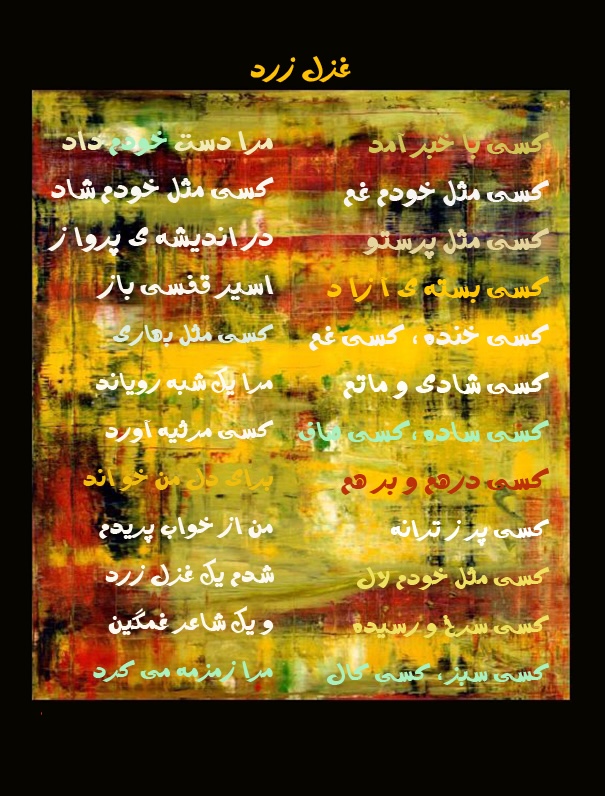 غزل زرد
کسی با خبر آمد مرا دست خودم داد
کسی مثل خودم غم کسی مثل خودم شاد
کسی مثل پرستو در اندیشه ی پرواز
کسی بسته ی آزاد اسیر قفسی باز
کسی خنده ، کسی غم کسی مثل بهاری
کسی شادی و ماتم مرا یک شبه رویاند
کسی ساده ، کسی صاف کسی مرثیه آورد
کسی درهم و برهم برای دل من خواند
کسی پر ز ترانه من از خواب پریدم
کسی مثل خودم لال شدم یک غزل زرد
کسی سرخ و رسیده و یک شاعر غمگین
کسی سبز ، کسی کال مرا زمزمه می کرد